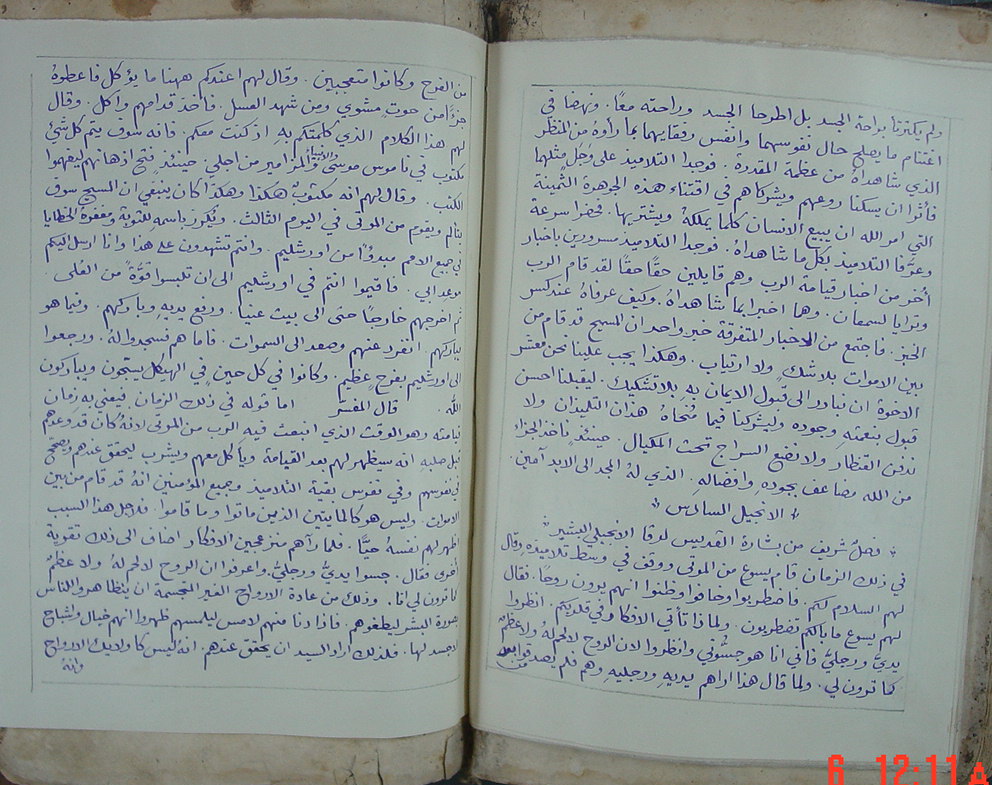 ولم يكترثا براحة الجسد بل اطرحا الجسد وراحته معًا. ونهضا في
اغتنام ما يصلح حال نفوسهما وانفس رفقايهما بما رأوهُ من المنظر
الذي شاهداهُ من عظمة المقدرة. فوجدا التلاميذ على وَجَلٍ مثلهما
فآثرا ان يسكنا روعهم ويشركاهم في اقتناء هذه الجوهرة الثمينة
التي امر الله ان يبيع الانسان كلما يملكهُ ويشتريها. فحضرا سرعة
وعرَّفا التلاميذ بكل ما شاهداهُ. فوجدا التلاميذ مسرورين باخبار
أُخر من اخبار قيامة الرب وهم قايلين حقًا حقًا لقد قام الرب
وترايا لسمعان. وهما اخبرا بما شاهداهُ. وكيف عرفاهُ عند كسر
الخبز. فاجتمع من الاخبار المتفرقة خبر واحد ان المسيح قد قام من
بين الاموات بلا شك ولا ارتياب. وهكذا يجب علينا نحن معشر
الاخوة ان نبادر الى قبول الايمان به بلا تشكيك. ليقبلنا احسن
قبول بنعمته وجوده وليشركنا فيما مُنحاهُ هذان التلميذان ولا
ندفن القنطار ولا نضع السراج تحت المكيال. حينئذٍ ناخذ الجزاء
من الله مضاعف بجوده وافضاله. الذي لهُ المجد الى الابد آمين.
* الانجيل السادس *
* فصلٌ شريف من بشارة القديس لوقا الانجيلي البشير *
في ذلك الزمان قام يسوع من الموتى ووقف في وسط تلاميذه وقال
لهم السلام لكم. فاضطربوا وخافوا وظنوا انهم يرون روحًا. فقال
لهم يسوع ما بالكم تضطربون. ولماذا تأتي الافكار في قلوبكم. انظروا
يديَّ ورجليَّ فاني انا هو جسُّوني وانظروا لان الروح لا لحم لهُ ولا عظمٌ
كما ترون لي. ولما قال هذا اراهم يديهِ ورجليهِ وهم فلم يصدقوا بعد
من
من الفرح وكانوا متعجبين. وقال لهم اعندكم ههنا ما يؤكل فاعطوهُ
جزءًا من حوتٍ مشوي ومن شهد العسل. فاخذ قدامهم واكل. وقال
لهم هذا الكلام الذي كلمتكم بهِ اذ كنت معكم. فانه سوف يتم كل شيءٍ
مكتوب في ناموس موسى والانبياء والمزامير من اجلي. حينئذ فتح اذهانهم ليفهموا
الكتب. وقال لهم انه مكتوبٌ هكذا وهكذا كان ينبغي ان المسيح سوف
يتألم ويقوم من الموتى في اليوم الثالث. ويُكرز باسمهِ للتوبة ومغفرة الخطايا
في جميع الامم مبدؤًا من اورشليم. وانتم تشهدون على هذا وانا ارسل اليكم
موعد ابي. فاقيموا انتم في اورشليم الى ان تلبسوا قوَّةً من العُلى.
ثم اخرجهم خارجًا حتى الى بيت عنيا. ورفع يديه وباركهم. وفيما هو
يباركهم انفرد عنهم وصعد الى السموات. فاما هم فسجدوا لهُ. ورجعوا
الى اورشليم بفرحٍ عظيم. وكانوا في كل حينٍ في الهيكل يسبّحون ويباركون
الله. قال المفسّر اما قوله في ذلك الزمان فيعني به زمان
قيامته وهو الوقت الذي انبعث فيه الرب من الموتى لانهُ كان قد وعدهم
قبل صلبهِ انه سيظهر لهم بعد القيامة وياكل معهم ويشرب ليحقق عندهم ويصحح
في نفوسهم وفي نفوس بقية التلاميذ وجميع المؤمنين انهُ قد قام من بين
الاموات. وليس هو كالمايتين الذين ماتوا وما قاموا. فلاجل هذا السبب
اظهر لهم نفسهُ حيًّا. فلما رآهم منزعجين الافكار اضاف الى ذلك تقوية
أُخرى فقال. جسوا يديَّ ورجليَّ. واعرفوا ان الروح لا لحم لهُ ولا عظمٌ
كما ترون لي انا. وذلك من عادة الارواح الغير المجسمة ان يتظاهروا للناس
بصورة البشر ليطغوهم. فاذا دنا منهم لامس ليلمسهم ظهروا انهم خيال واشباح
لا جسد لها. فلذلك اراد السيد ان يحقق عندهم. انهُ ليس كاولايك الارواح
وانهُ
6 12:11 A